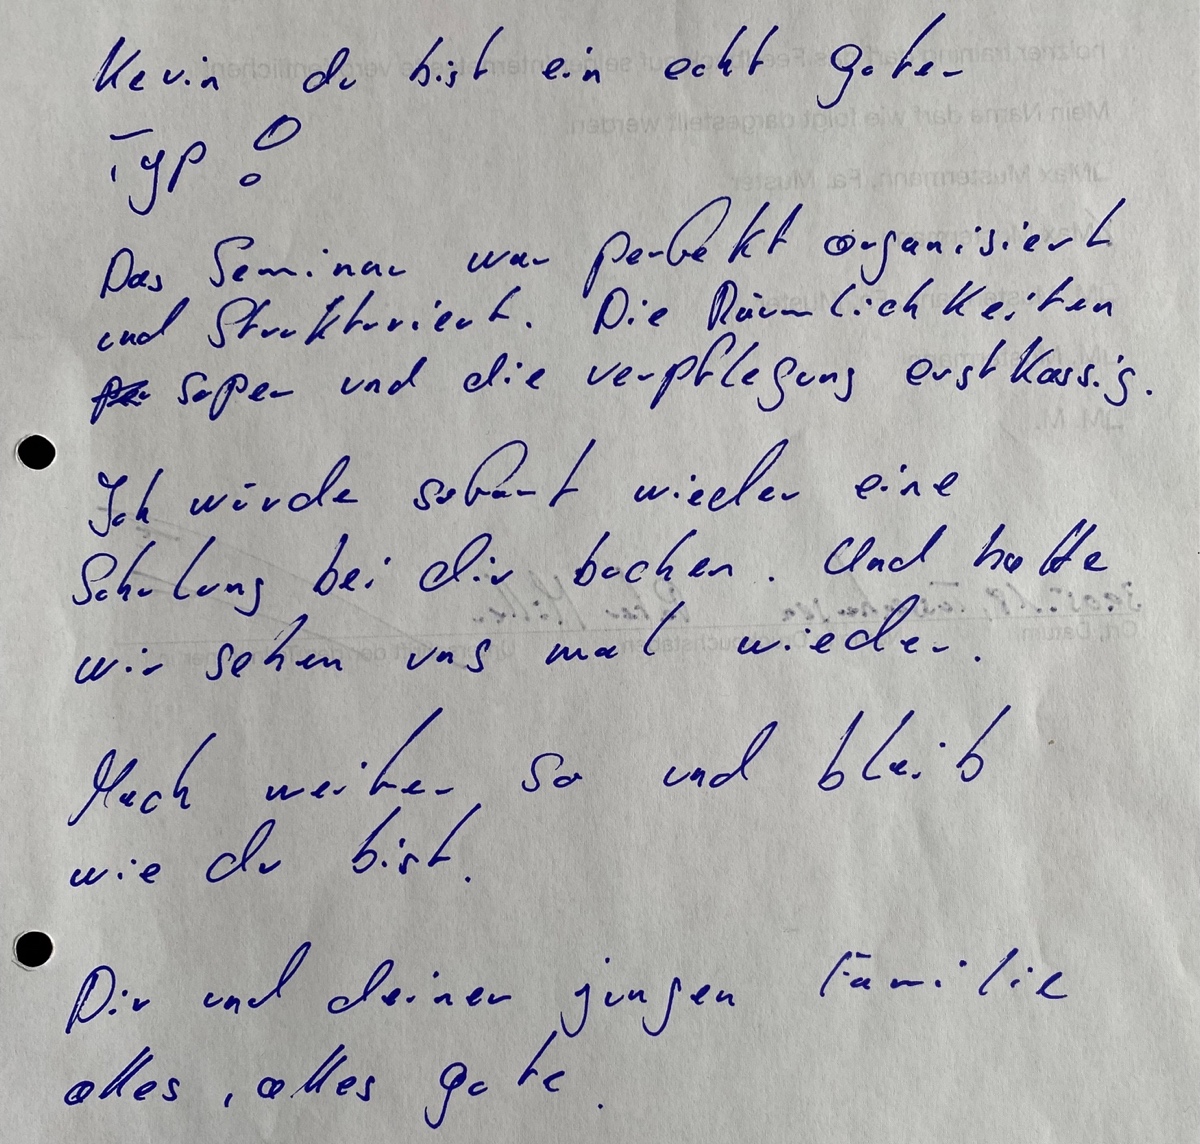 Kevin du bist ein echt guter
Typ!
Das Seminar war perfekt organisiert
und Strukturiert. Die Räumlichkeiten
super und die verpflegung erstklassig.
Ich würde sofort wieder eine
Schulung bei dir buchen. Und hoffe
wir sehen uns mal wieder.
Mach weiter so und bleib
wie du bist.
Dir und deiner jungen Familie
alles, alles gute.